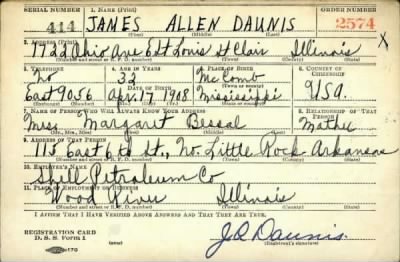 SERIAL NUMBER 1. NAME (Print) ORDER NUMBER
414 JAMES ALLEN DAUNIS 2574
(First) (Middle) (Last)
2. ADDRESS (Print)
7722 Ohio Ave E St Louis St Clair Illinois X
(Number and street or R. F. D. number) (Town) (County) (State)
3. TELEPHONE 4. AGE IN YEARS 5. PLACE OF BIRTH 6. COUNTRY OF CITIZENSHIP
No 32 McComb
DATE OF BIRTH (Town or county)
East 9056 Apr. 17 1908 Mississippi USA.
(Exchange) (Number) (Mo.) (Day) (Yr.) (State or country)
7. NAME OF PERSON WHO WILL ALWAYS KNOW YOUR ADDRESS 8. RELATIONSHIP OF THAT PERSON
Margaret Bessal
(Mr., Mrs., Miss) (First) (Middle) (Last)
9. ADDRESS OF THAT PERSON
115 East 6th St., No. Little Rock Arkansas
(Number and street or R. F. D. number) (Town) (County) (State)
10. EMPLOYER'S NAME
Shell Petroleum Co
11. PLACE OF EMPLOYMENT OR BUSINESS
Wood River Illinois
(Number and street or R. F. D. number) (Town) (County) (State)
I AFFIRM THAT I HAVE VERIFIED ABOVE ANSWERS AND THAT THEY ARE TRUE.
REGISTRATION CARD
D. S. S. Form 1 J A Daunis.
(Registrant's signature)